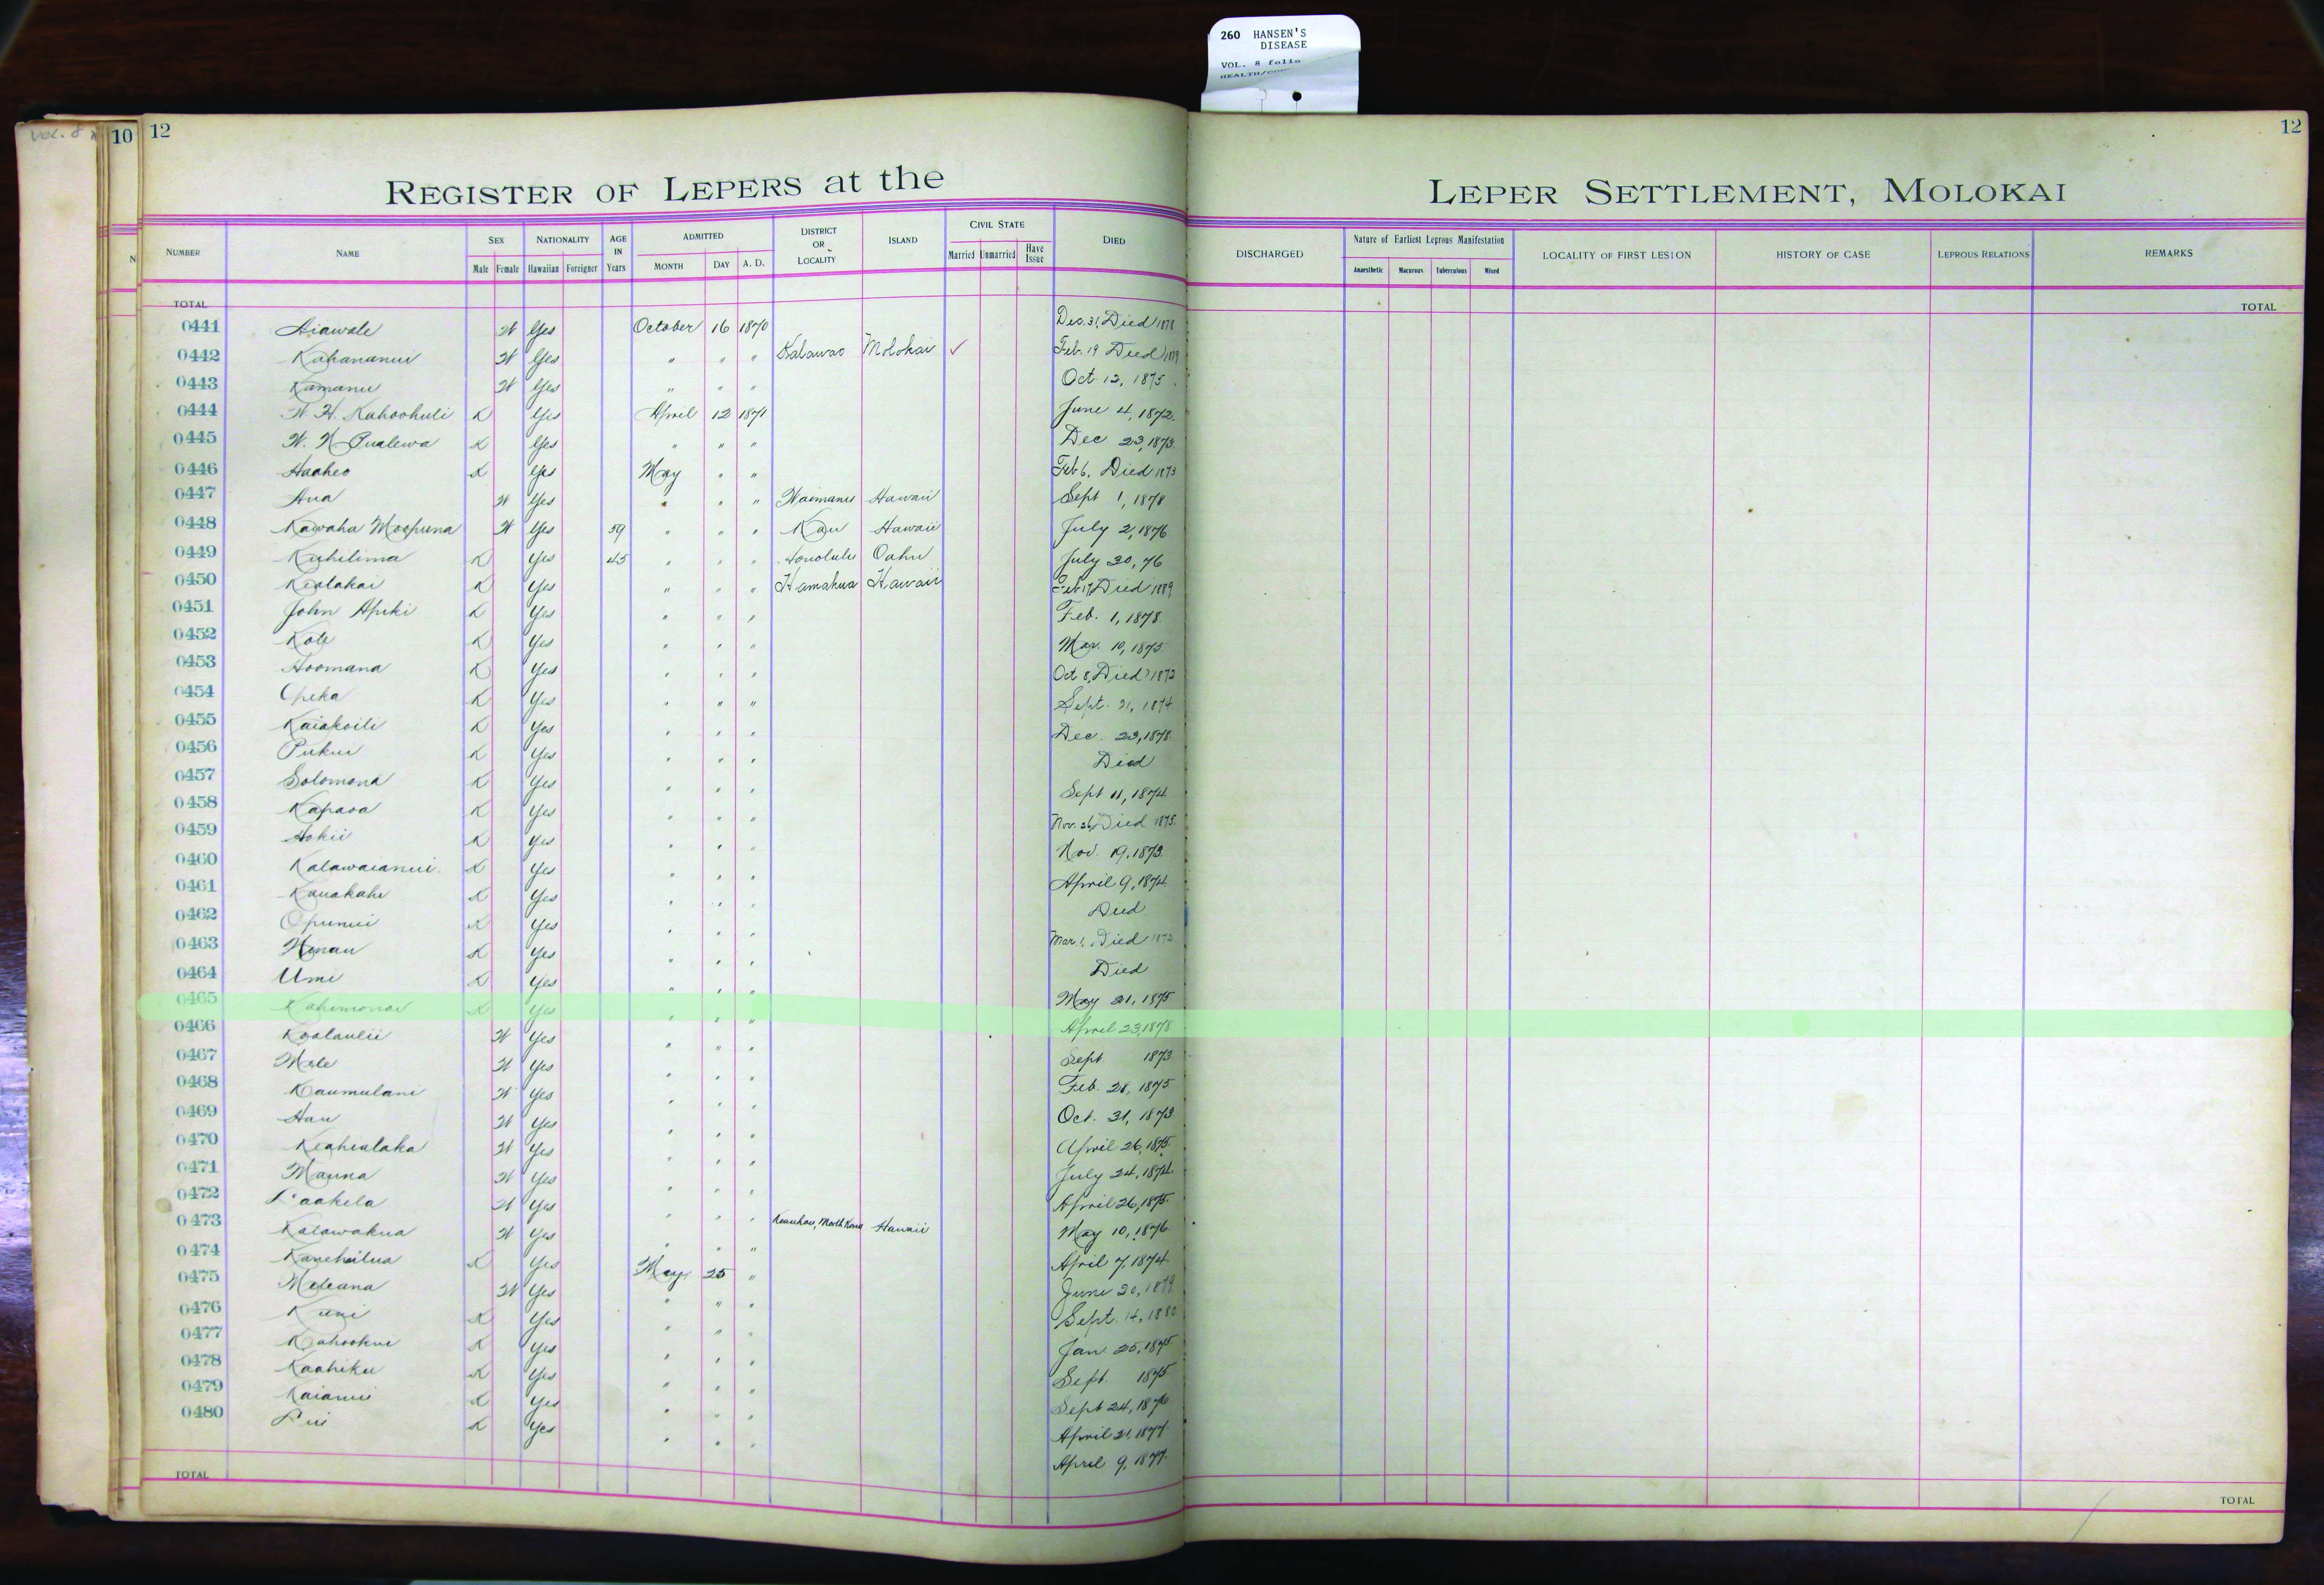 260 HANSEN'S
DISEASE
VOL. 8 folio
10
12
12
REGISTER OF LEPERS at the LEPER SETTLEMENT, MOLOKAI
NUMBER NAME SEX NATIONALITY AGE IN Years ADMITTED DISTRICT OR LOCALITY ISLAND CIVIL STATE DIED DISCHARGED Nature of Earliest Leprous Manifestation LOCALITY OF FIRST LESION HISTORY OF CASE LEPROUS RELATIONS REMARKS
Male Female Hawaiian Foreigner MONTH DAY A. D. Married Unmarried Have Issue Anaesthetic Macurous Tuberculous Mixed
TOTAL TOTAL
0441 Aiawale W Yes October 16 1870 Dec. 31, Died 1878
0442 Kahananui W Yes " " " Kalawao Molokai ✓ Feb. 19 Died 1879
0443 Kamanu W Yes " " " Oct. 12, 1875
0444 W. H. Kahoohuli K Yes April 12 1871 June 4, 1872
0445 W. N. Pualewa K Yes " " " Dec 23, 1873
0446 Haaheo K Yes May " " Feb 6, Died 1873
0447 Ana W Yes " " " Waimanu Hawaii Sept 1, 1878
0448 Kawaha Moopuna W Yes 59 " " " Kau Hawaii July 2, 1876
0449 Kuhilima K Yes 45 " " " Honolulu Oahu July 30, 76
0450 Kealakai K Yes " " " Hamakua Hawaii Feb 17, Died 1889
0451 John Apiki K Yes " " " Feb. 1, 1878
0452 Kole K Yes " " " Mar. 10, 1875
0453 Hoomana K Yes " " " Oct 8, Died 1873
0454 Opeka K Yes " " " Sept. 21, 1874
0455 Kaiakoili K Yes " " " Dec. 23, 1878
0456 Pukui K Yes " " " Died
0457 Solomona K Yes " " " Sept 11, 1874
0458 Kapaoa K Yes " " " Nov. 26, Died 1875
0459 Hokii K Yes " " " Nov. 19, 1873
0460 Kalawaianui K Yes " " " April 9, 1874
0461 Kauakahi K Yes " " " Died
0462 Opunui K Yes " " " Mar. 1, Died 1873
0463 Hinau K Yes " " " Died
0464 Umi K Yes " " " May 21, 1875
0465 Kahimonai K Yes " " " April 23, 1878
0466 Koolaulii W Yes " " " Sept 1873
0467 Mele W Yes " " " Feb. 28, 1875
0468 Kaumulani W Yes " " " Oct. 31, 1873
0469 Hau W Yes " " " April 26, 1875
0470 Keahialaka W Yes " " " July 24, 1874
0471 Mauna W Yes " " " April 26, 1875
0472 Laakela W Yes " " " Keauhou, North Kona Hawaii May 10, 1876
0473 Kalawakua W Yes " " " April 7, 1874
0474 Kanehailua K Yes May 25 " June 20, 1879
0475 Meleana W Yes " " " Sept. 14, 1880
0476 Kuni K Yes " " " Jan 25, 1875
0477 Kahookui K Yes " " " Sept. 1875
0478 Kaahiku K Yes " " " Sept 24, 1876
0479 Kaianui K Yes " " " April 21, 1877
0480 Lui K Yes " " " April 9, 1877
TOTAL TOTAL